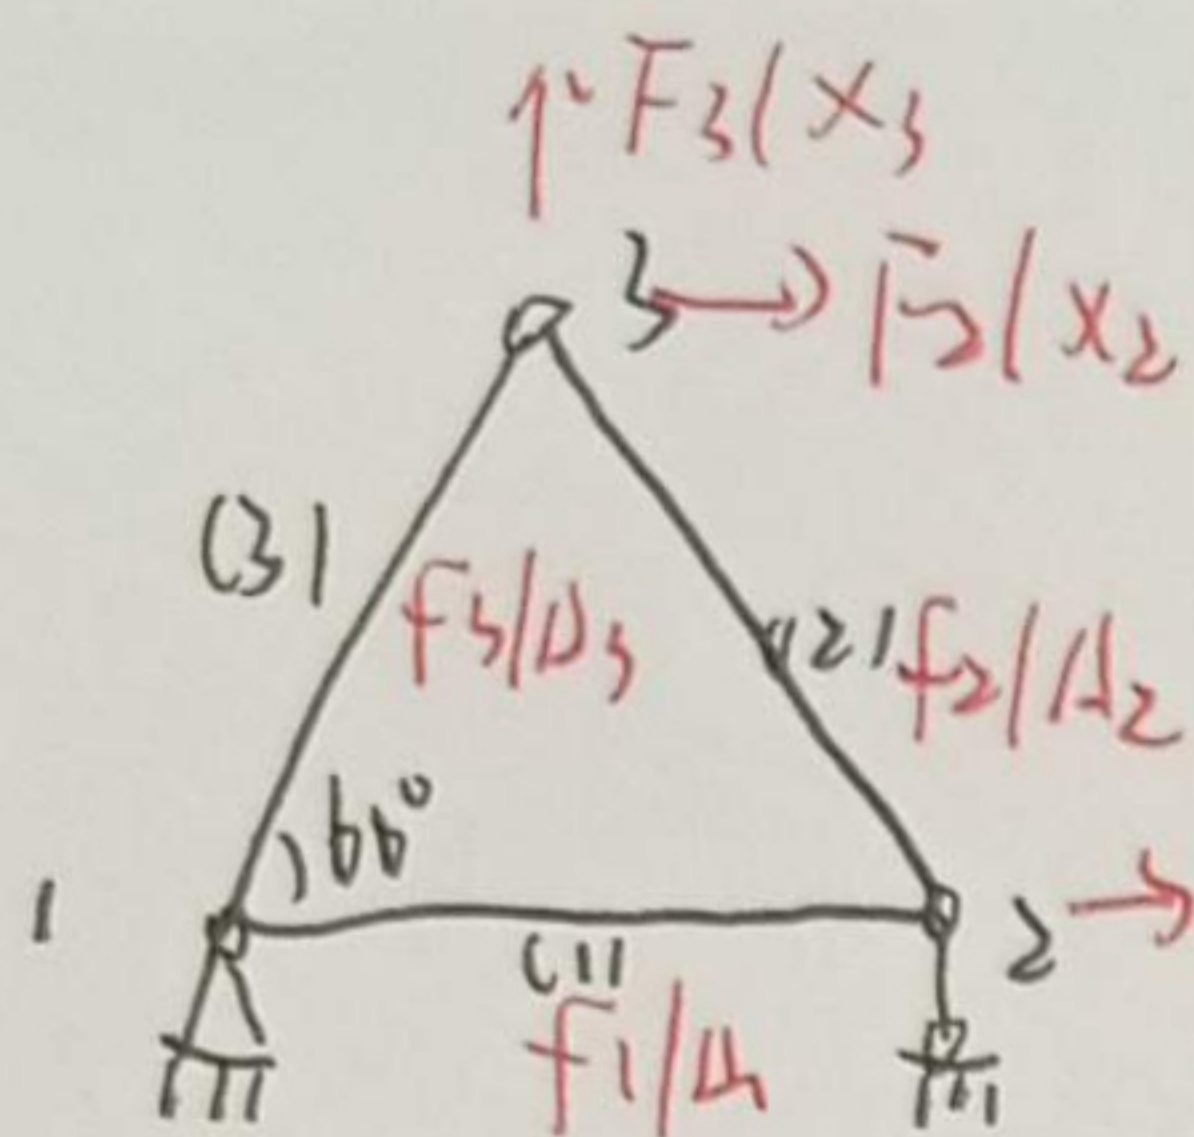 F3/X3
3 → F2/X2
(3)
f3/Δ3
(2) f2/Δ2
60°
1
2 →
(1)
f1/Δ1